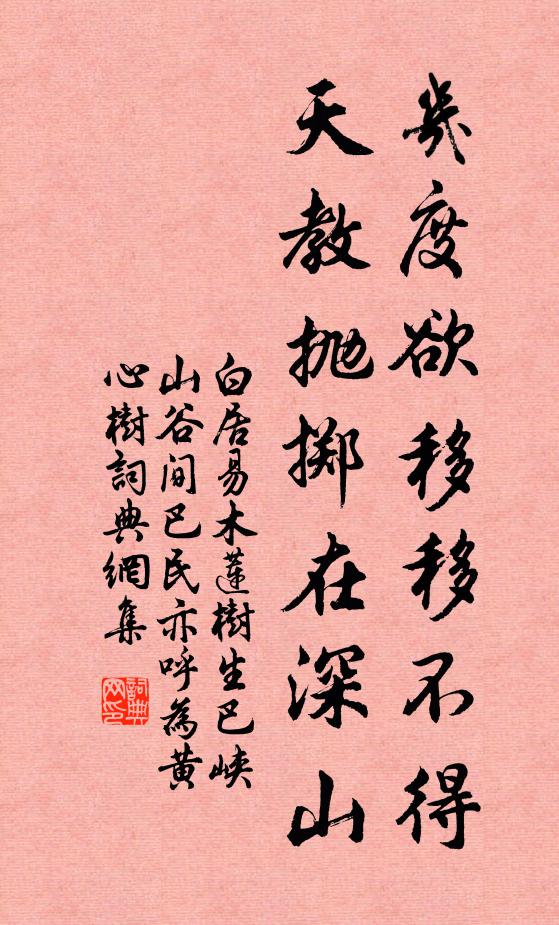 幾度欲移移不得
天教抛擲在深山
白居易木蓮樹生巴峽
山谷間巴民亦呼為黃
心樹詞典網集
詞典
网印